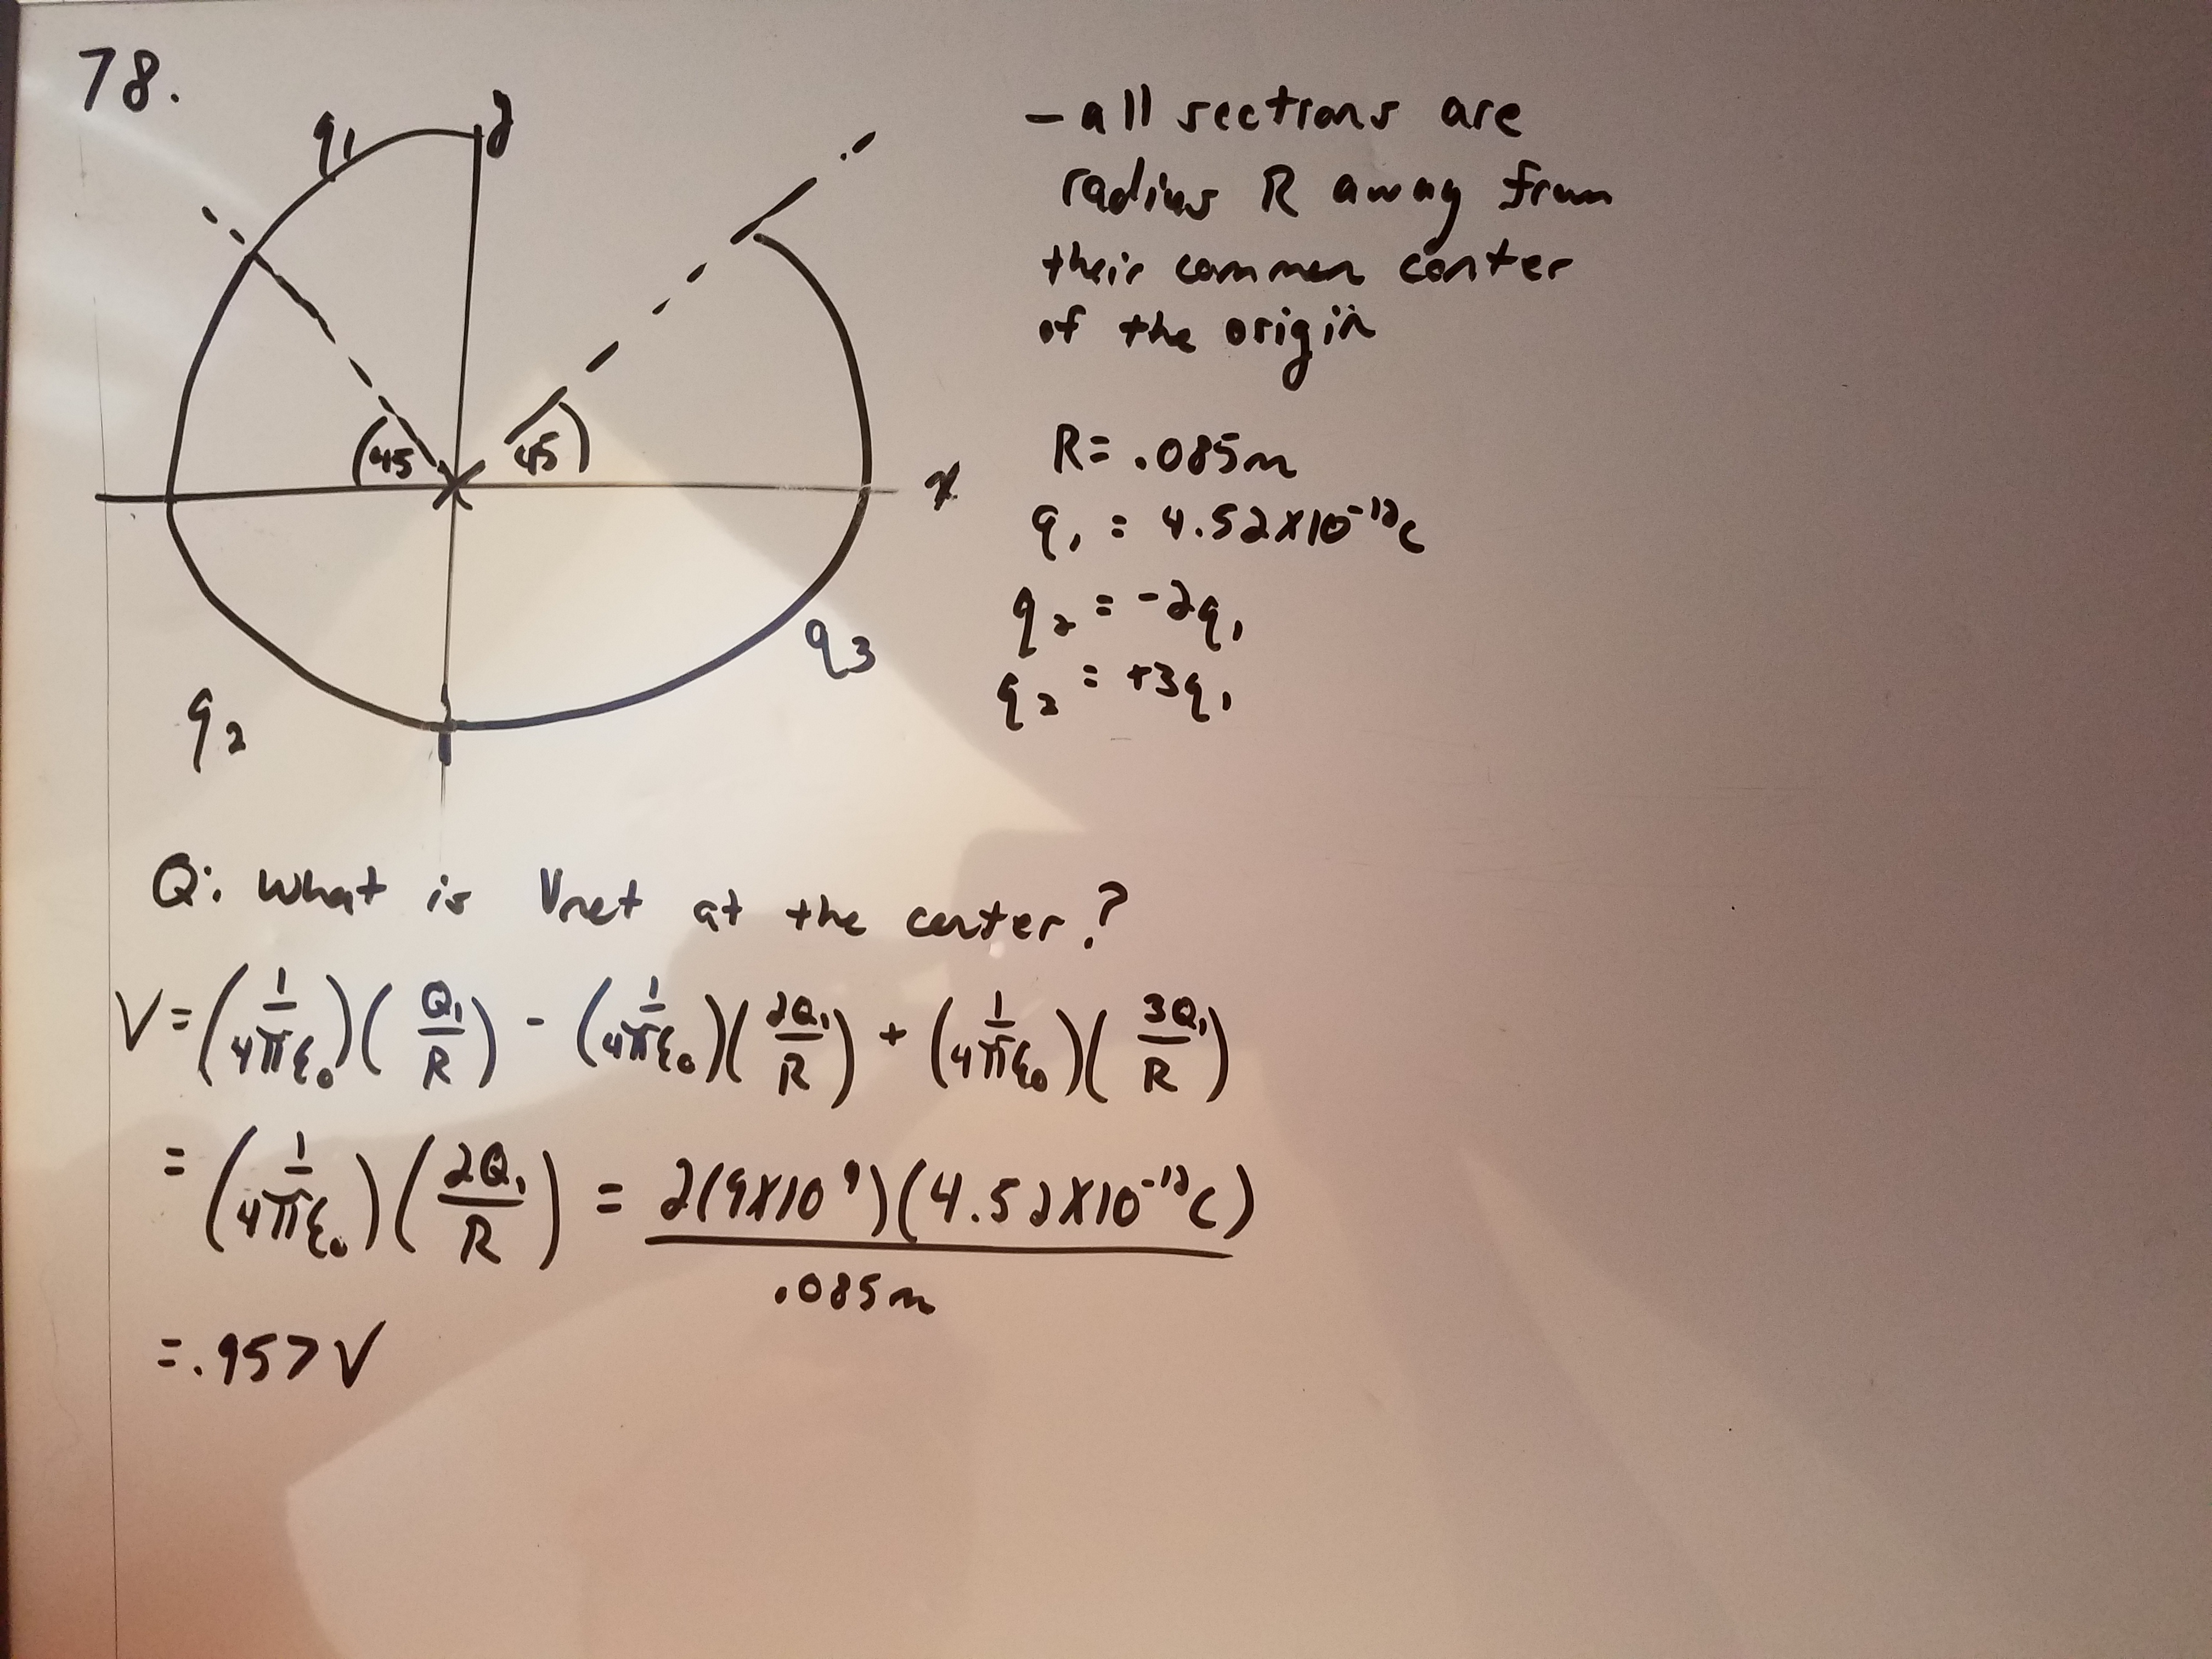 78.
- all sections are
radius R away from
their common center
of the origin
y
q1
(45
45)
x
R = .085m
q1 = 4.52x10^-12 C
q2 = -2q1
q2 = +3q1
q2
q3
Q: What is Vnet at the center?
V = (1/4πε0)(Q1/R) - (1/4πε0)(2Q1/R) + (1/4πε0)(3Q1/R)
= (1/4πε0)(2Q1/R) = 2(9x10^9)(4.52x10^-12 C)/.085m
= .957 V